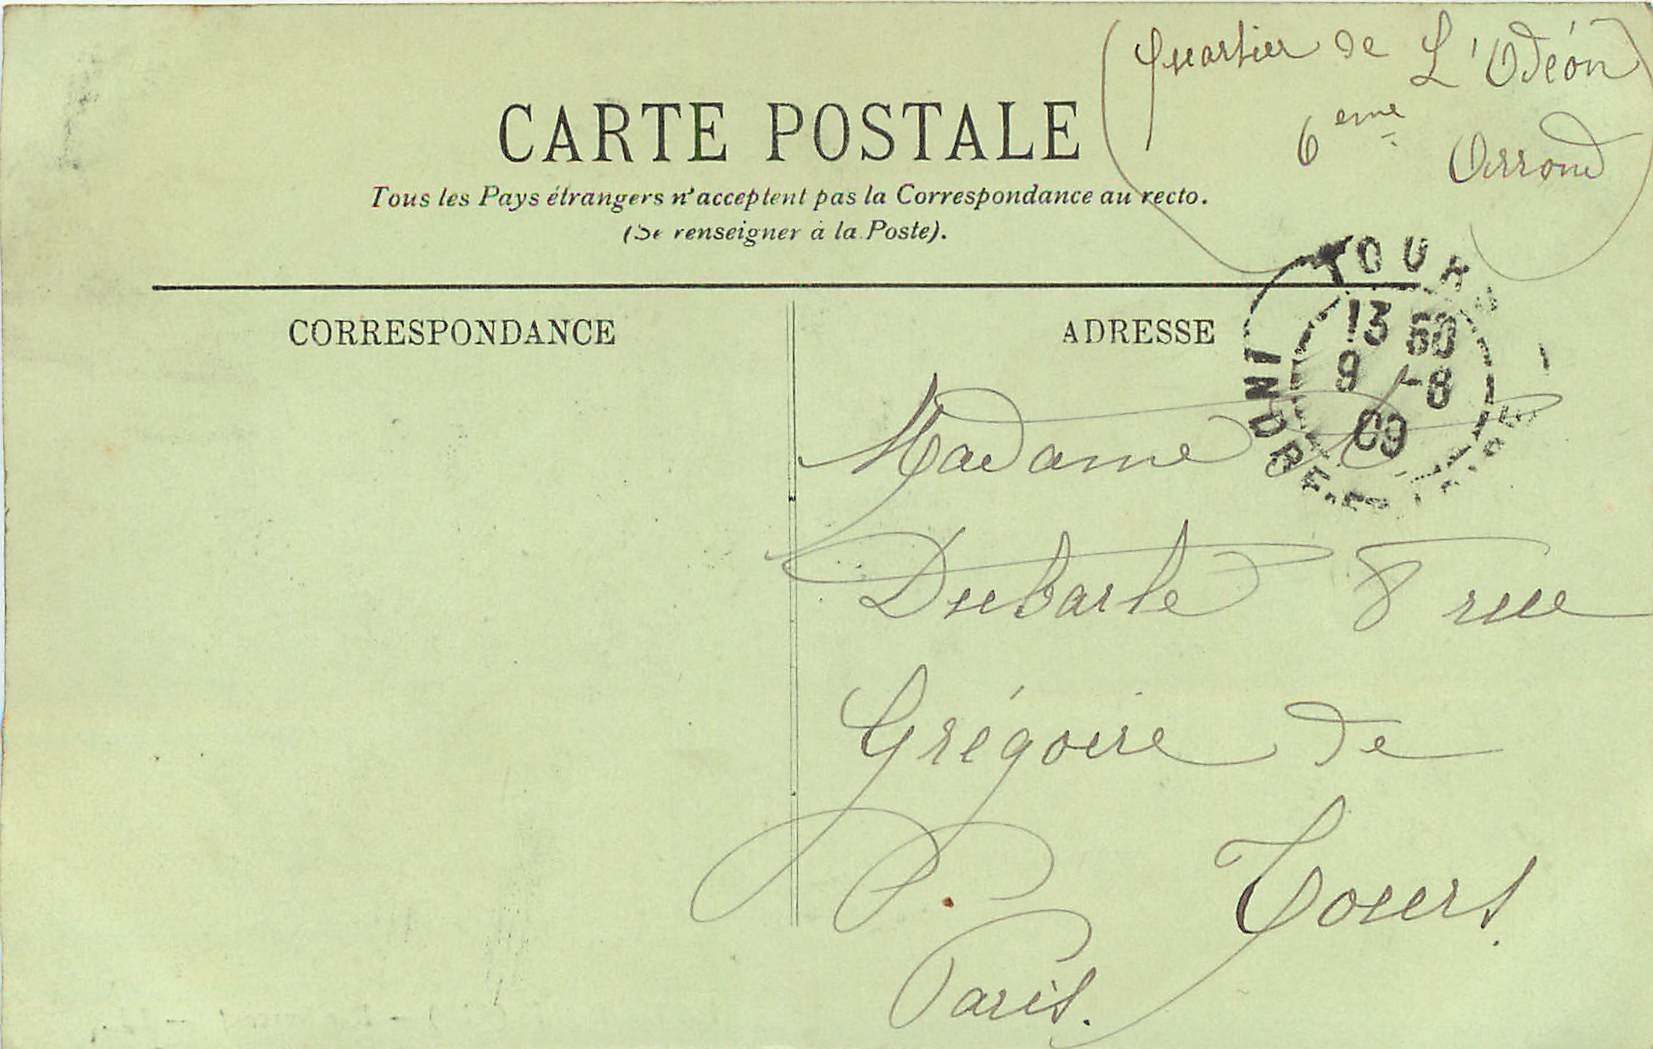 (Quartier de L'Odéon
6eme Arrond)
CARTE POSTALE
Tous les Pays étrangers n'acceptent pas la Correspondance au recto.
(Se renseigner à la Poste).
CORRESPONDANCE
ADRESSE
TOURS
13 50
9 -8
09
INDRE-ET-LOIRE
Madame
Dubarle 8 rue
Grégoire de
Tours.
Paris.